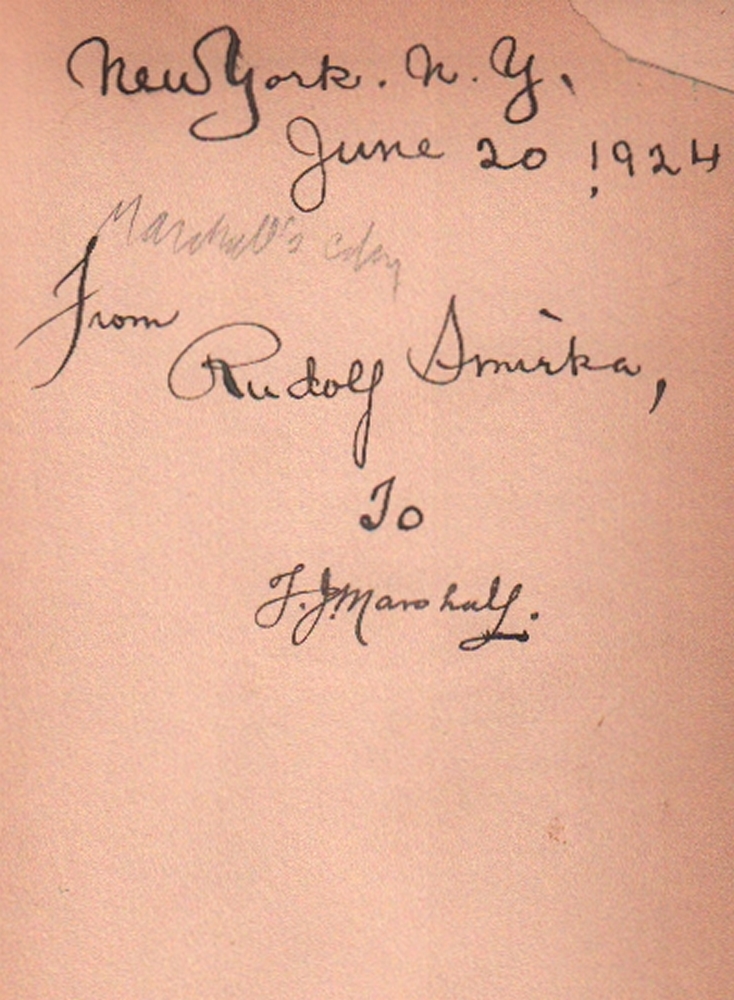 New York. N. Y.
June 20 1924
Marshall's copy
From
Rudolf Smirka,
To
F. J. Marshall.